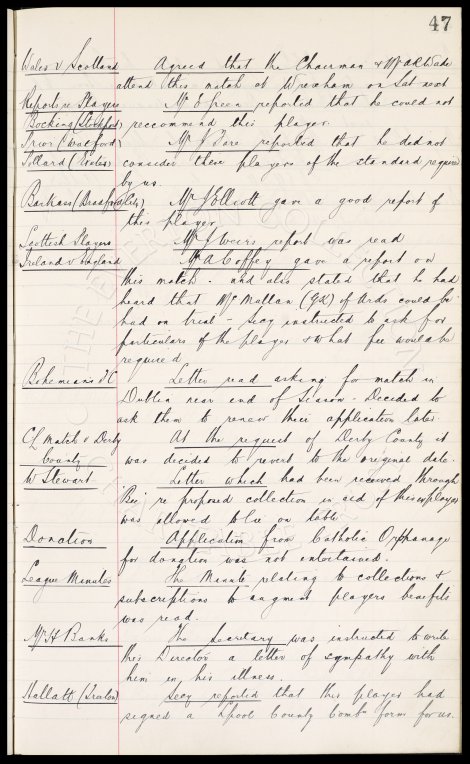 47
Wales v Scotland Agreed that the Chairman & Mr A R Wade
attend this match at Wrexham on Sat next
Reports re Players Mr E Green reported that he could not
Bocking (Stockport) reccommend this player.
Prior (Watford) Mr J Fare reported that he did not
Pollard (Exeter) consider these players of the standard required
by us.
Barkass (Bradford City) Mr J Elliott gave a good report of
this player
Scottish Players Mr J Weirs report was read
Ireland v England Mr A Coffey gave a report on
this match - and also stated that he had
heard that McMullan (GK) of Ards could be
had on trial - Secy instructed to ask for
particulars of the player & what fee would be
required
Bohemians FC Letter read asking for match in
Dublin near end of Season - Decided to
ask them to renew their application later.
CL Match v Derby At the request of Derby County it
County was decided to revert to the original date.
W Stewart Letter which had been received through
re proposed collection in aid of this explayer
was allowed to lie on table
Donation Application from Catholic Orphanage
for donation was not entertained.
League Minutes The Minute relating to collections &
subscriptions to augment players benefits
was read.
Mr H Banks The Secretary was instructed to write
this Director a letter of sympathy with
him in his illness.
Hallatt (Preston) Secy reported that this player had
signed a Lpool County Combn form for us.